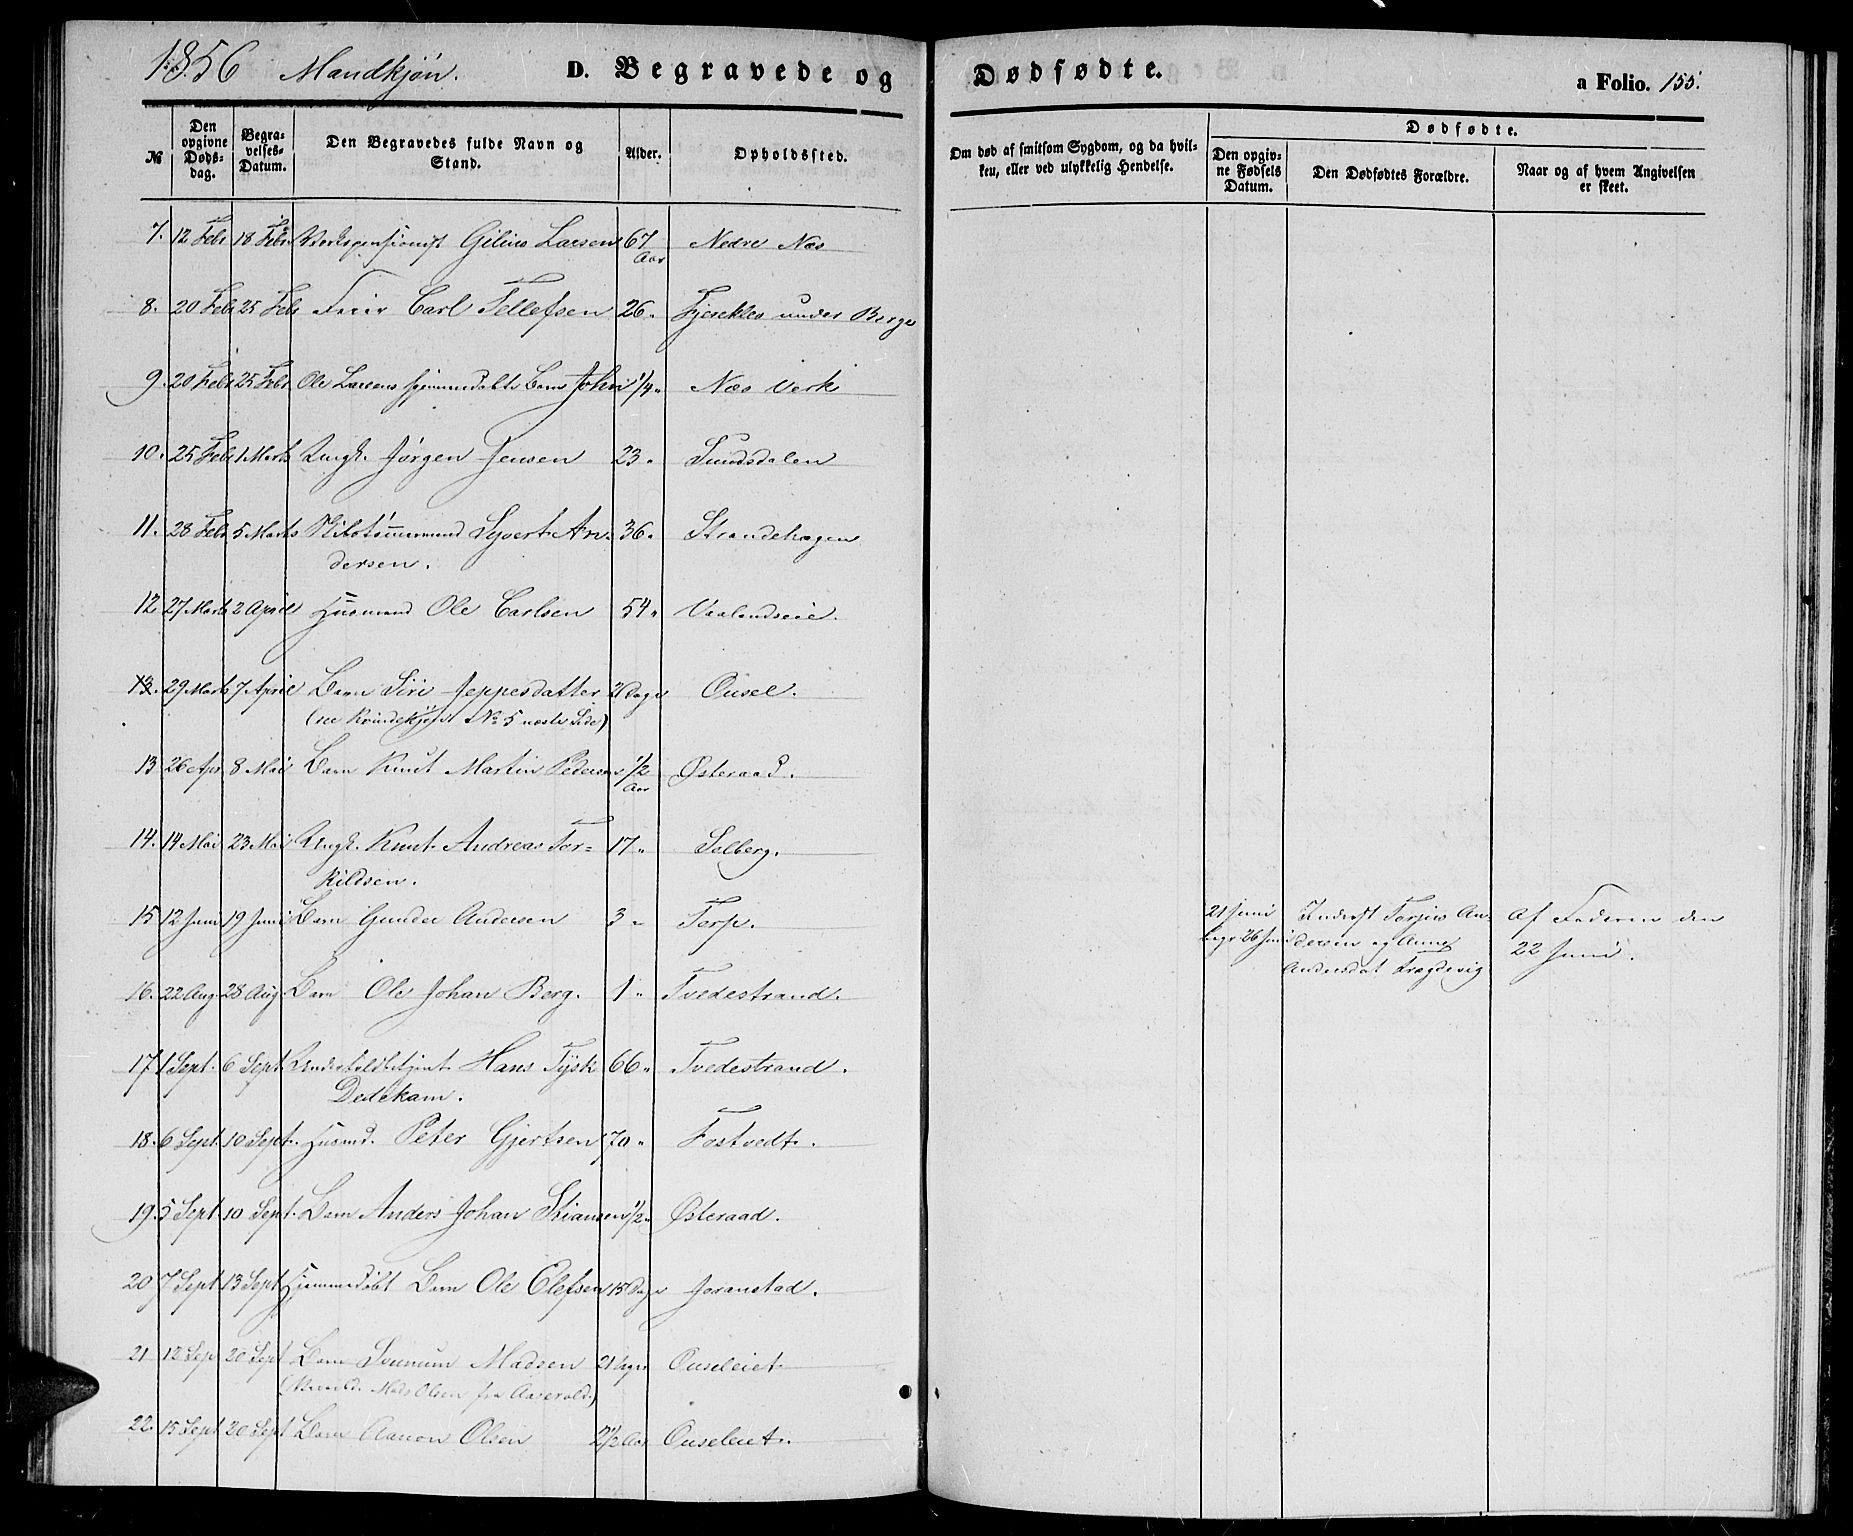 1856 Mandkjøn. D. Begravede og Dødfødte. a Folio. 155.
№ Den opgivne Døds-dag. Begra-velses-Datum. Den Begravedes fulde Navn og Stand. Alder. Opholdssted. Om død af smitsom Sygdom, og da hvil-ken, eller ved ulykkelig Hendelse. Dødfødte. Den opgiv-ne Fødsels Datum. Den Dødfødtes Forældre. Naar og af hvem Angivelsen er skeet.
7. 12 Febr 18 Febr Værkspensionist Larsen 67 Aar Nedre Næs
8. 20 Febr 25 Febr Carl Tellefsen 26 " under Berge
9. 20 Febr 25 Febr Ole Larsens hjemmedøbte Barn John 1/4 " Næs Verk
10. 25 Febr 1 Marts Ungk. Jørgen Jensen 23 " Sundsdalen
11. 28 Febr 5 Marts Skibstømmermand Syvert An-
dersen. 36 " Strandehagen
12 27 Marts 2 April Husmand Ole Carlsen 54 " Vaalandseie.
13. 29 Marts 7 April Barn Siri Jeppesdatter 2 Dage Ousel.
(see Kvindekjøn No 5 næste Side)
13 26 Apr 8 Mai Barn Knut Martin Pedersen 1/2 Aar Østeraad.
14. 14 Mai 23 Mai Ungk. Knut Andreas Tor=
kildsen. 17 " Selberg.
15 12 Juni 19 Juni Barn Gunder Andersen 3 " Torp. 21 Juni Inderst Terjus An- Af Faderen den
begr 26 Juni dersen og Anne 22 Juni.
Andersdat
16. 22 Aug. 28 Aug. Barn Ole Johan Berg. 1 " Tvedestrand.
17 1 Sept. 6 Sept. Undertoldbetjent Hans Tysk 66 " Tvedestrand.
Dedekam.
18. 6 Sept. 10 Sept. Husmd. Peter Gjertsen 70 " Fostvedt.
19. 5 Sept. 10 Sept. Barn Anders Johan Stiansen 1/2 " Østeraad.
20 7 Sept 13 Sept Hjemmedøbt Barn Ole Olefsen 15 Dage Joranstad.
21 12 Sep 20 Sept Barn Madsen 21 Ouseleiet
( Mads Olsen fra Aaserald.)
22. 15 Sept 20 Sept Barn Aanon Olsen 2 1/2 Aar Ouseleiet.